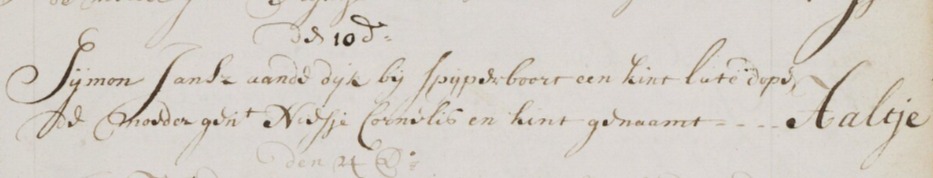 den 10 d:
Sijmon Jansz aande dijk bij spijperboort een kint late dope,
de moeder gent Niesje Cornelis en kint genaamt - - - - Aaltje
den 24 d: